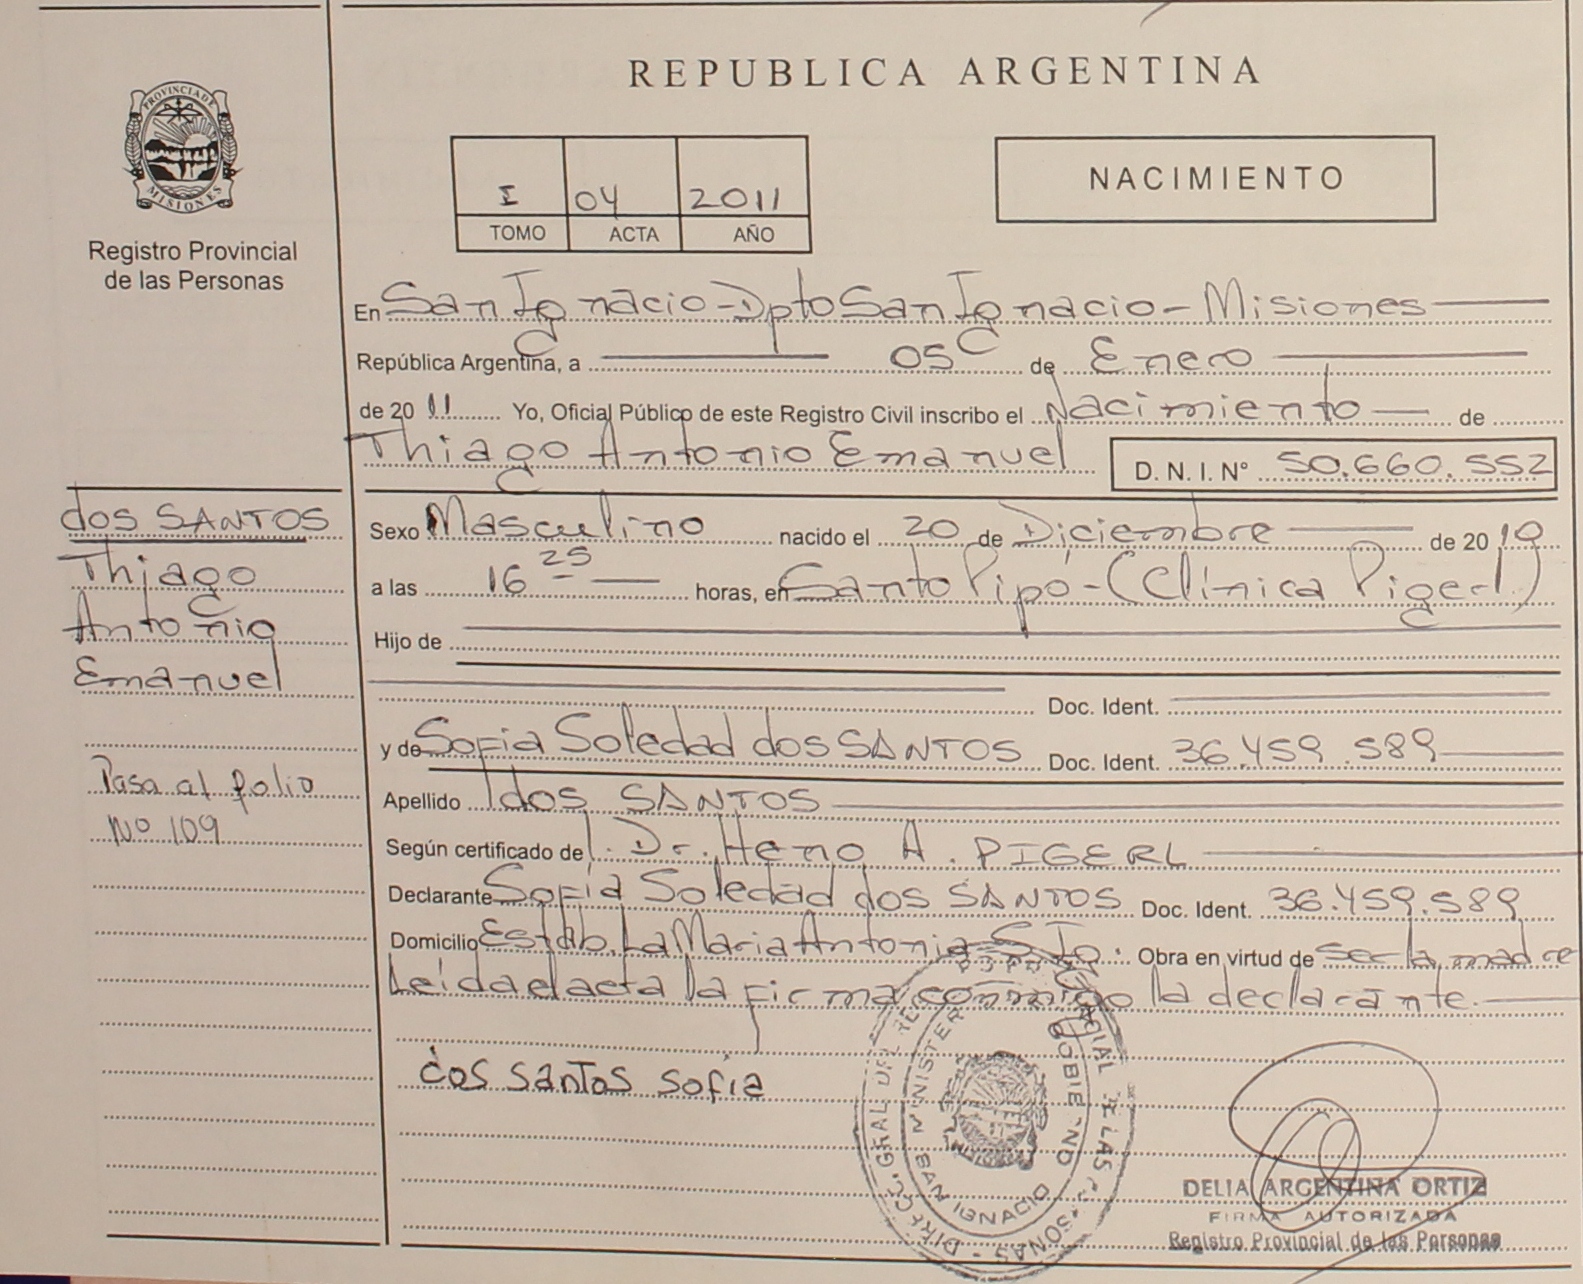 REPUBLICA ARGENTINA
PROVINCIA DE
MISIONES
Registro Provincial
de las Personas
I 04 2011
TOMO ACTA AÑO
NACIMIENTO
En San Ignacio - Dpto San Ignacio - Misiones
República Argentina, a 05 de Enero
de 20 11 Yo, Oficial Público de este Registro Civil inscribo el Nacimiento de
Thiago Antonio Emanuel D. N. I. Nº 50.660.552
dos SANTOS
Thiago
Antonio
Emanuel
Pasa al folio
Nº 109
Sexo Masculino nacido el 20 de Diciembre de 20 10
a las 16 25 horas, en Santo Pipó - (Clínica Pigerl)
Hijo de
Doc. Ident.
y de Sofia Soledad dos SANTOS Doc. Ident. 36.459.589
Apellido dos SANTOS
Según certificado del Dr. Heno A. PIGERL
Declarante Sofía Soledad dos SANTOS Doc. Ident. 36.459.589
Domicilio Estab. La Maria Antonia S. Ig. Obra en virtud de ser la madre
Leída el acta la firma conmigo la declarante.
dos santos sofia
MINISTER GOBIERNO
SAN IGNACIO
DELIA ARGENTINA ORTIZ
FIRMA AUTORIZADA
Registro Provincial de las Personas